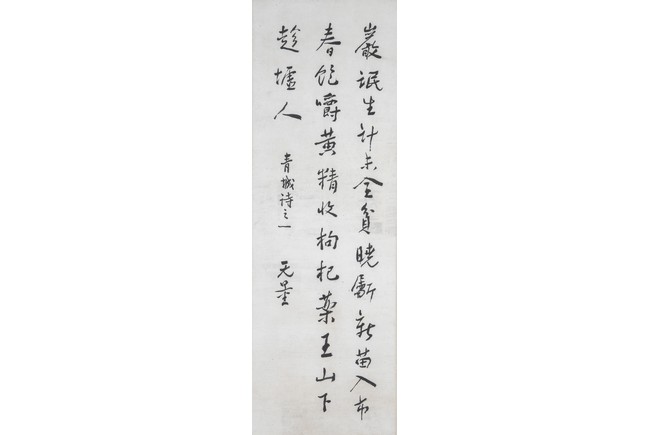 巖氓生计未全貧曉斸新苗入市
春飽嚼黃精收枸杞藥王山下
趁墟人
青城诗之一
无量